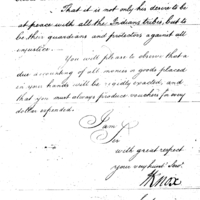 That it is not only her desire to be
at peace with all the Indians tribes, but to
be their guardians and protectors against all
injustice.
You will please to observe that a
due accounting of all monies & goods placed
in your hands will be rigidly exacted, and
that you must always produce vouchers for every
dollar expended.
I am
Sir
with great respect
your very hum Serv.
H Knox